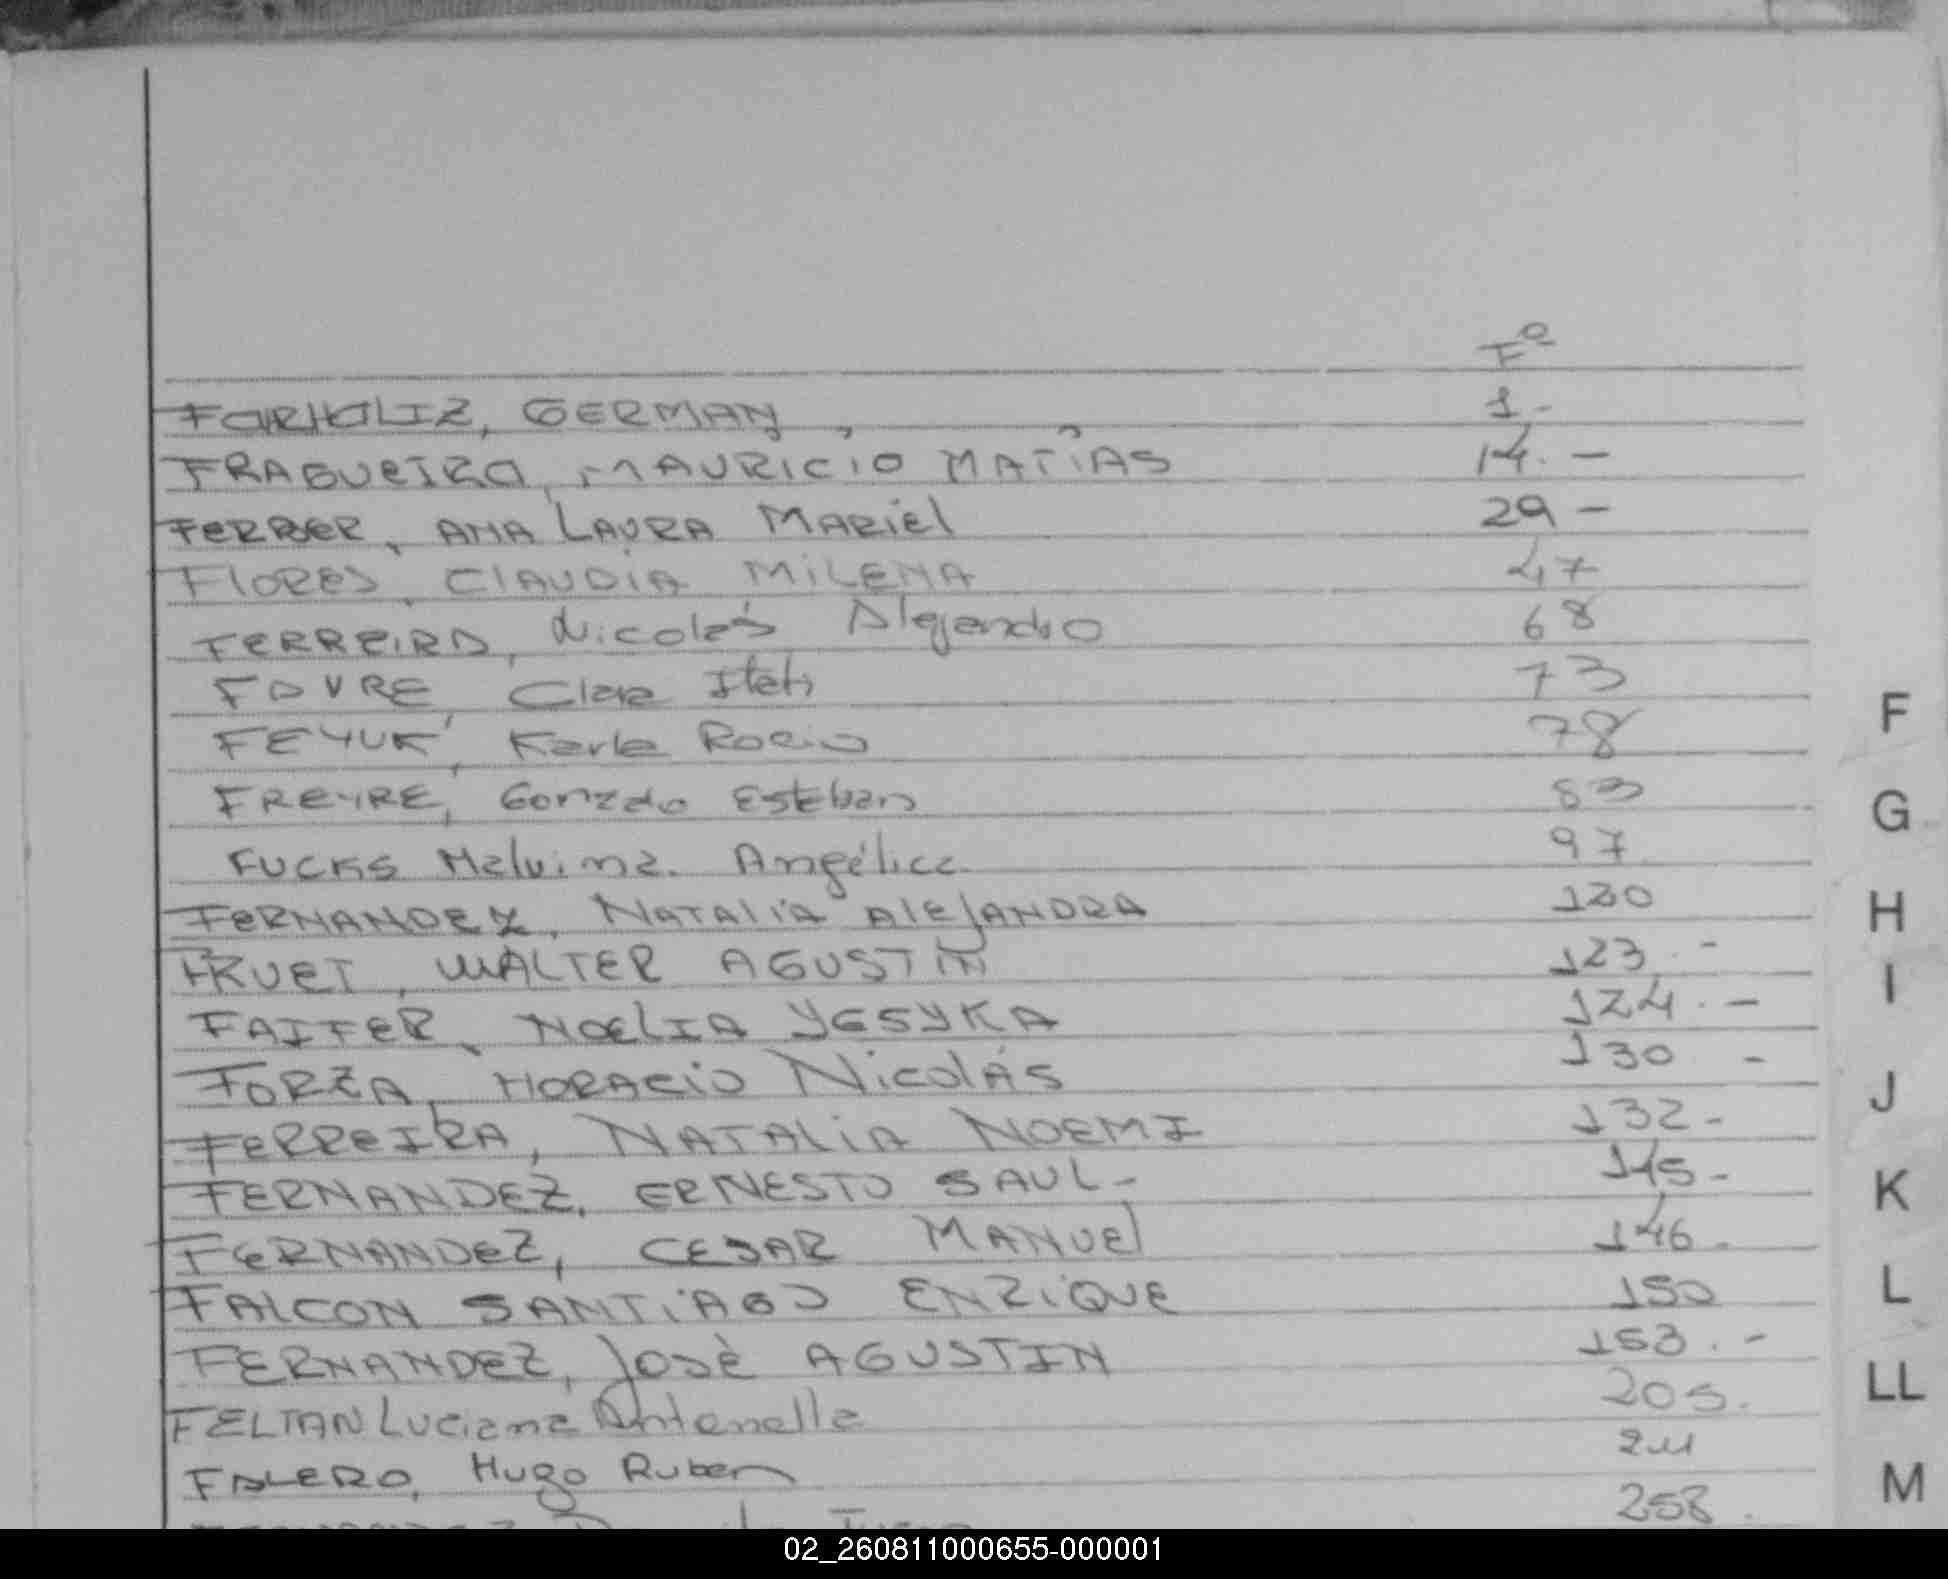 Fº
GERMAN, 1.-
FRAGUEIRO, MAURICIO MATÍAS 14.-
FERRER, ANA LAURA MARIEL 29-
FLORES, CLAUDIA MILENA 47
FERREIRA, Nicolás Alejandro 68
FAVRE, Clara Itatí 73
FEYUK, Karla Rocio 78
FREYRE, Gonzalo Esteban 83
FUCKS Malvina Angélica 97
FERNANDEZ, NATALIA ALEJANDRA 120
FRUET, WALTER AGUSTIN 123.-
FAIFER, NOELIA YESYKA 124.-
FORZA, HORACIO NICOLÁS 130 -
FERREIRA, NATALIA NOEMI 132-
FERNANDEZ, ERNESTO SAUL- 145-
FERNANDEZ, CESAR MANUEL 146.
FALCON SANTIAGO ENRIQUE 150
FERNANDEZ, JOSÈ AGUSTIN 153.-
FELTAN Luciana Antonella 205.
FALERO, Hugo Ruben 211
258.
F
G
H
I
J
K
L
LL
M
02_260811000655-000001